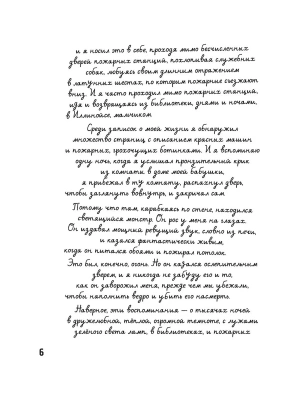 и я носил это в себе, проходя мимо бесчисленных
дверей пожарных станций, похлопывая служебных
собак, любуясь своим длинным отражением
в латунных шестах, по которым пожарные съезжают
вниз. И я часто проходил мимо пожарных станций,
идя и возвращаясь из библиотеки, днями и ночами,
в Иллинойсе, мальчиком
Среди записок о моей жизни я обнаружил
множество страниц с описанием красных машин
и пожарных, грохочущих ботинками. И я вспоминаю
одну ночь, когда я услышал пронзительный крик
из комнаты в доме моей бабушки,
я прибежал в ту комнату, распахнул дверь,
чтобы заглянуть вовнутрь, и закричал сам.
Потому что там, карабкаясь по стене, находился
светящийся монстр. Он рос у меня на глазах.
Он издавал мощный ревущий звук, словно из печи,
и казался фантастически живым,
когда он питался обоями и пожирал потолок.
Это был, конечно, огонь. Но он казался ослепительным
зверем, и я никогда не забуду его и то,
как он заворожил меня, прежде чем мы убежали,
чтобы наполнить ведро и убить его насмерть.
Наверное, эти воспоминания – о тысячах ночей
в дружелюбной, тёплой, огромной темноте, с лужами
зелёного света ламп, в библиотеках, и пожарных
6